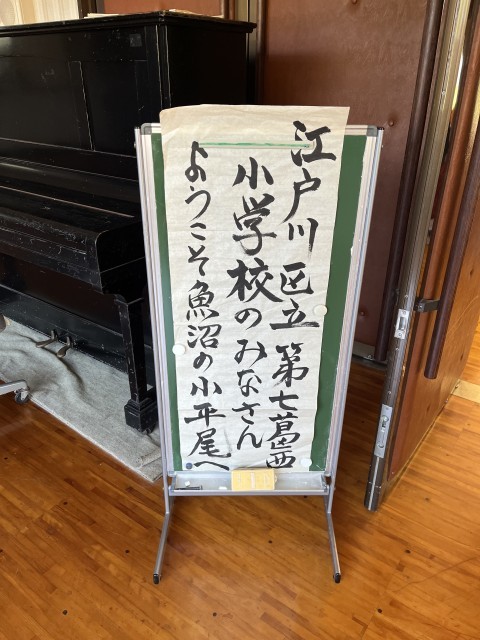 江戸川区立第七葛西
小学校のみなさん
ようこそ魚沼の小平尾へ